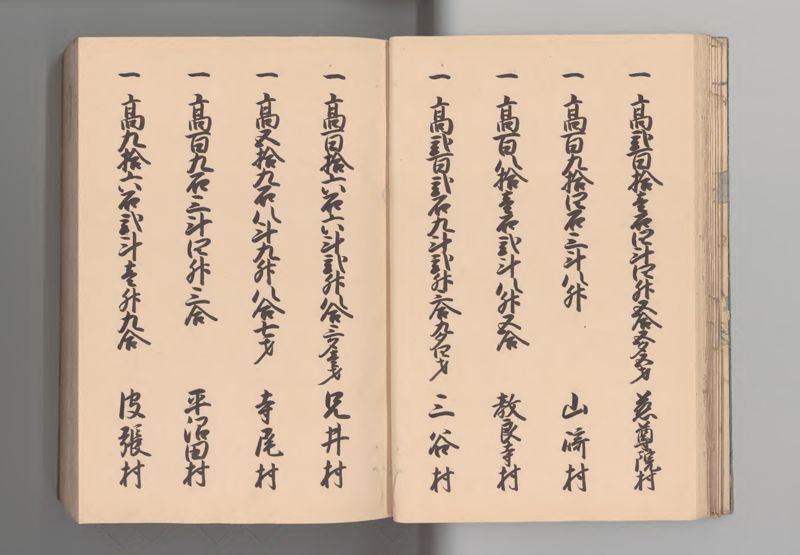 一 高弐百拾壱石四斗四升五合五夕五才 慈尊院村
一 高百九拾四石三斗八升 山崎村
一 高百八拾壱石弐斗八升五合 教良寺村
一 高弐百弐石九斗弐升三合九夕四才 三谷村
一 高百拾六石六斗弐升八合三夕壱才 兄井村
一 高五拾九石八斗九升八合七才 寺尾村
一 高百九石三斗四升三合 平沼田村
一 高九拾六石弐斗壱升九合 皮張村